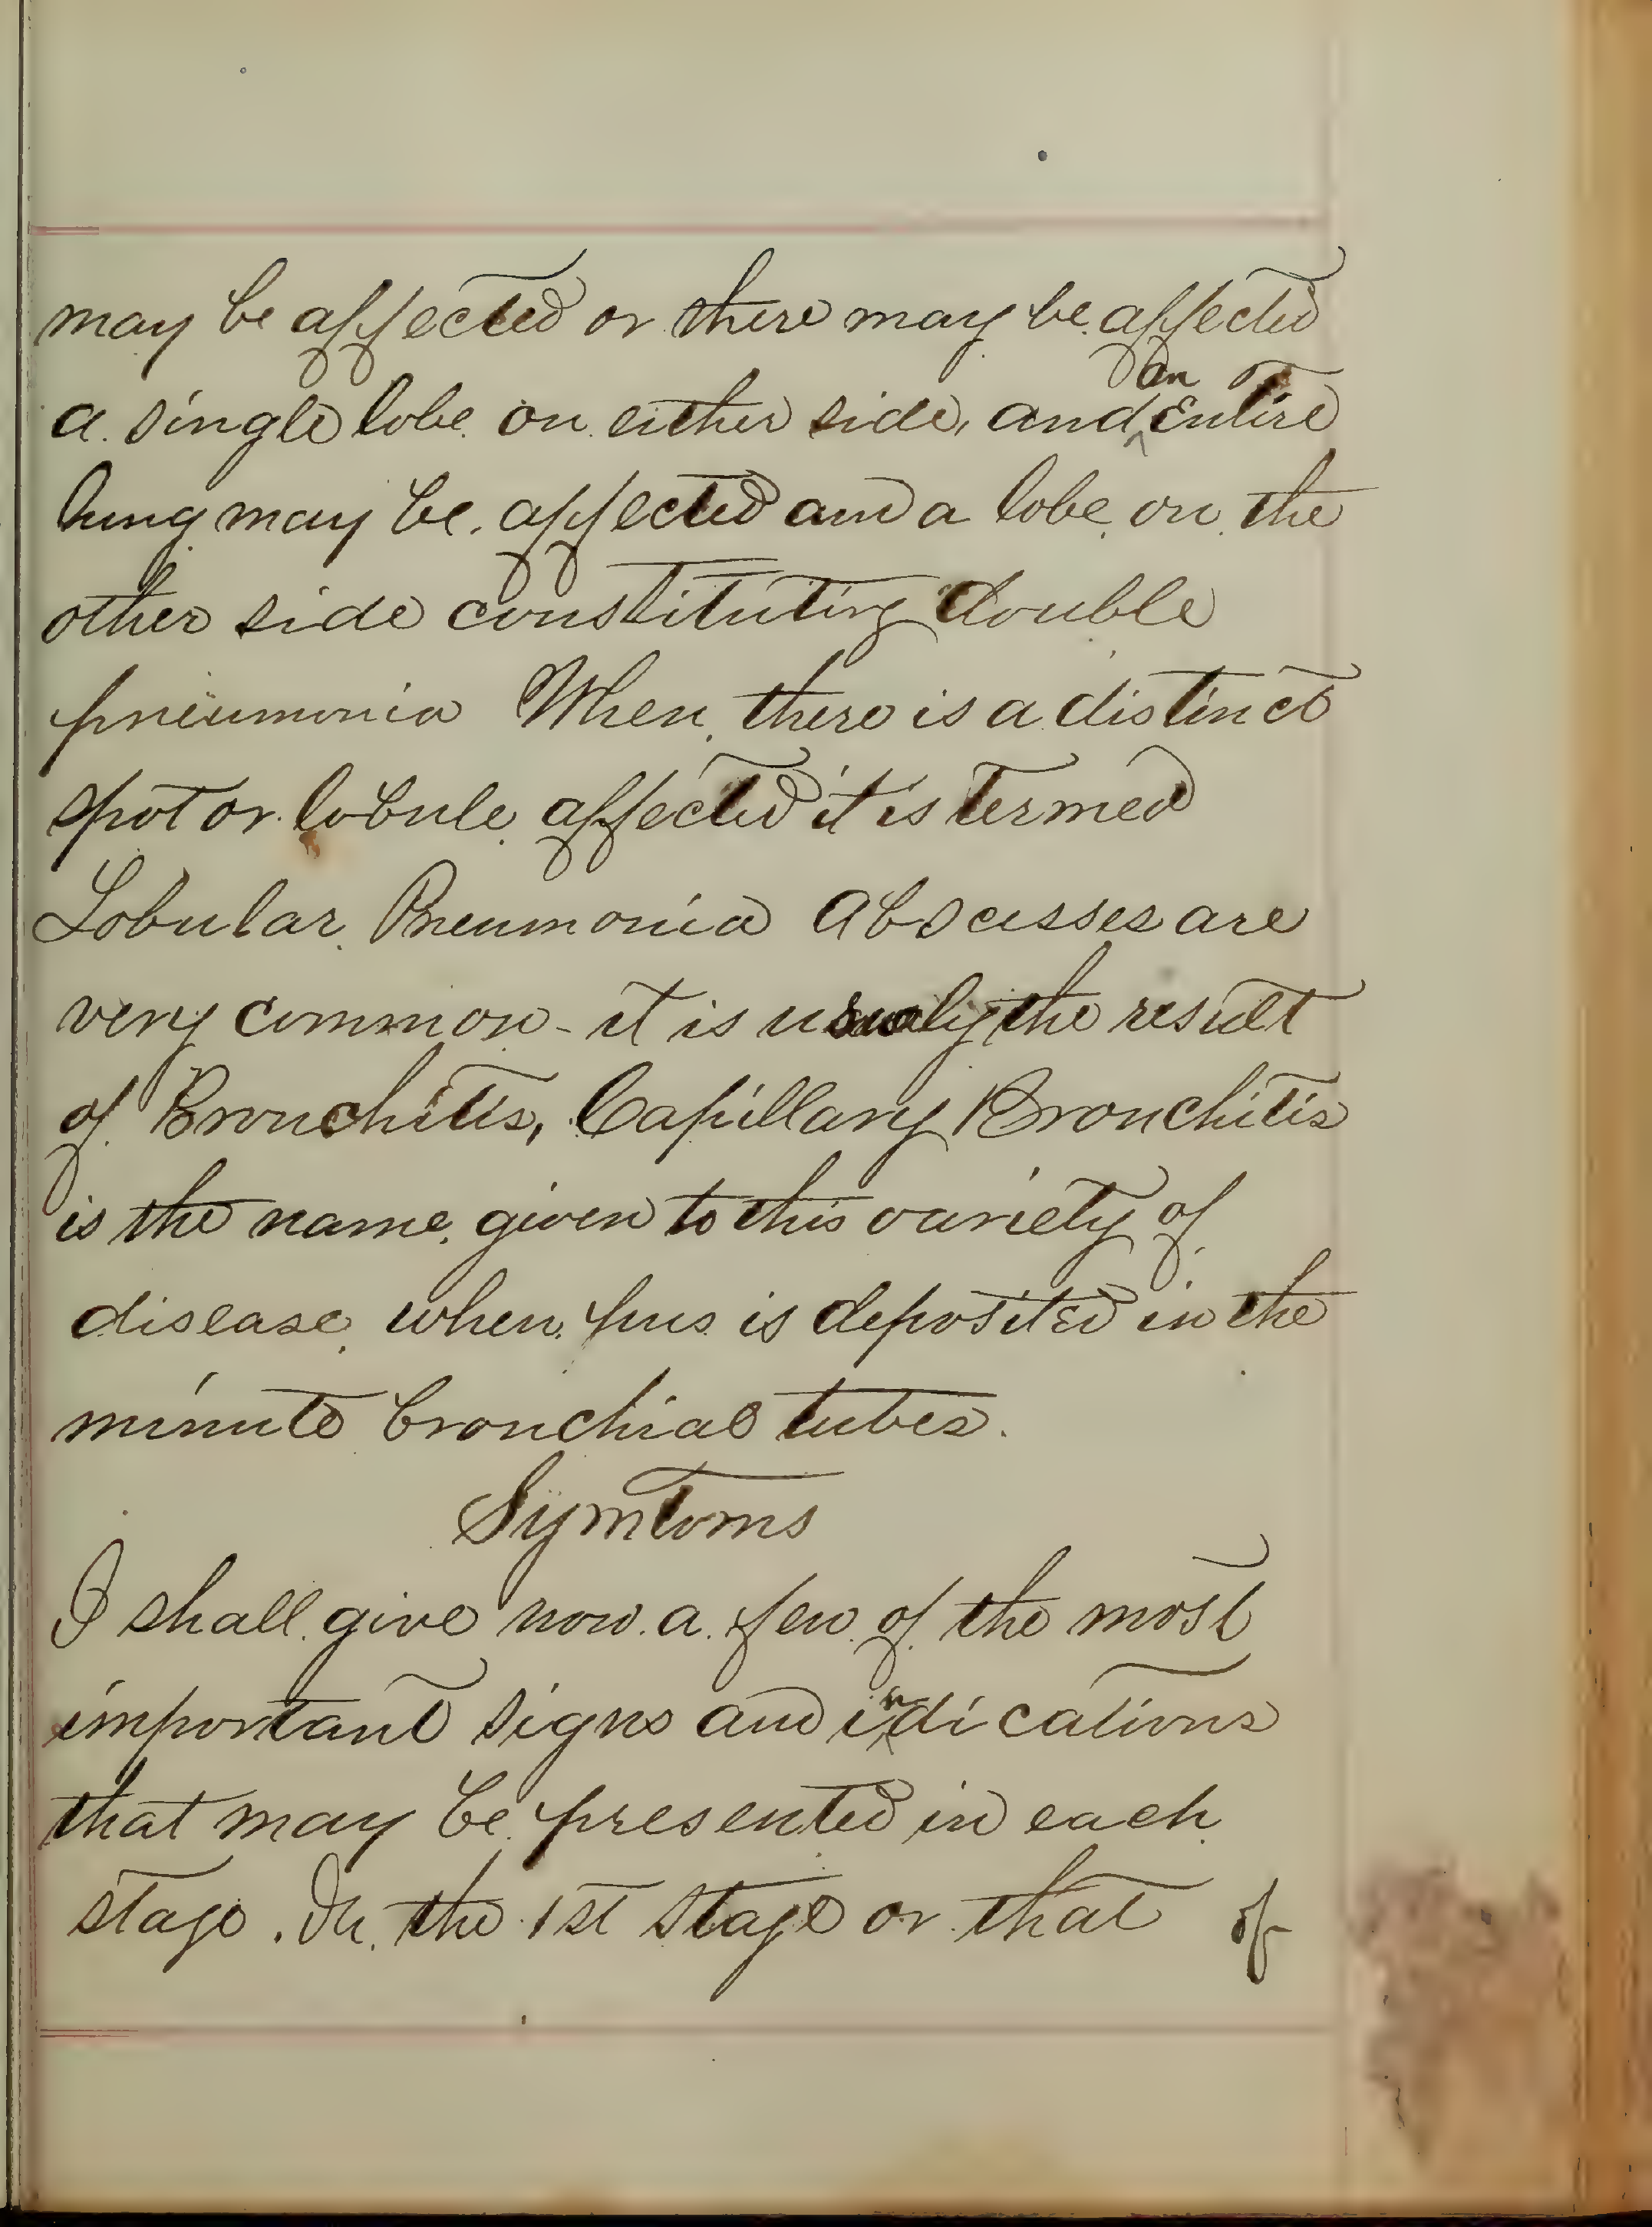 may be affected or there may be affected
a single lobe on either side, and an Entire
lung may be affected and a lobe on the
other side constituting double
pneumonia When there is a distinct
spot or lobule affected it is termed
Lobular Pneumonia Abscesses are
very common - it is usualy the result
of Bronchitis, Capillary Bronchitis
is the name given to this variety of
disease when pus is deposited in the
minute bronchial tubes.
Symtoms
I shall give now a few of the most
important signs and indications
that may be presented in each
stage. In the 1st stage or that of